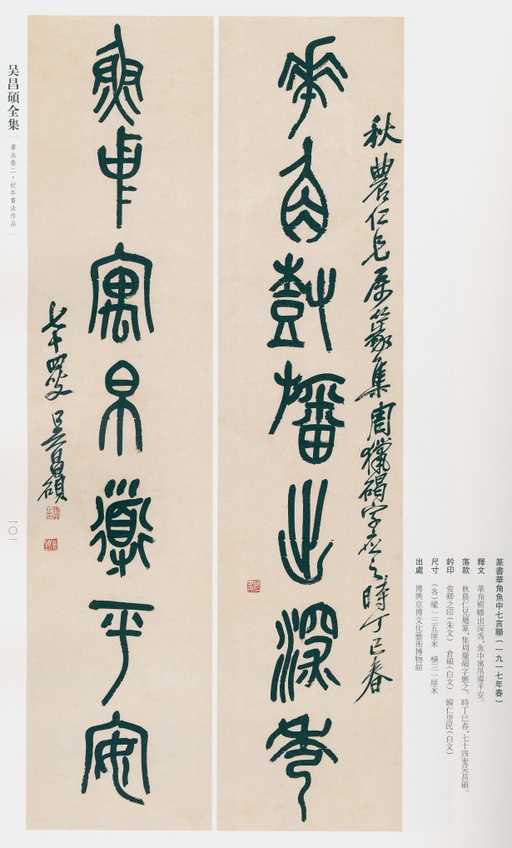 華角樹幡出深秀
秋農仁兄屬篆集周獵碣字應之時丁巳春
魚中寓帛導平安
七十四叟吳昌碩
篆書華角魚中七言聯（一九一七年春）
釋文　華角樹幡出深秀，魚中寓帛導平安。
落款　秋農仁兄屬篆，集周獵碣字應之。時丁巳春，七十四叟吳昌碩。
鈐印　俊卿之印（朱文）　倉碩（白文）　歸仁里民（白文）
尺寸　（各）縱一三五厘米　橫三一厘米
出處　博興京博文化藝術博物館
吴昌碩全集
書法卷二·紀年書法作品
一〇一